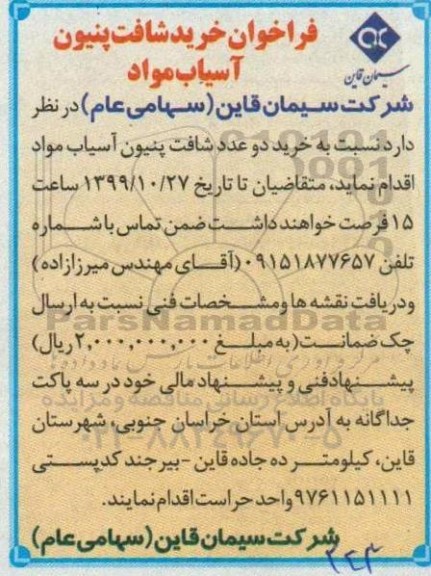 فراخوان خرید شافت پنیون
آسیاب مواد
سیمان قاین
شرکت سیمان قاین (سهامی عام) در نظر
دارد نسبت به خرید دو عدد شافت پنیون آسیاب مواد
اقدام نماید، متقاضیان تا تاریخ ۱۳۹۹/۱۰/۲۷ ساعت
۱۵ فرصت خواهند داشت ضمن تماس با شماره
تلفن ۰۹۱۵۱۸۷۷۶۵۷ (آقای مهندس میرزازاده)
و دریافت نقشه ها و مشخصات فنی نسبت به ارسال
چک ضمانت (به مبلغ ۲,۰۰۰,۰۰۰,۰۰۰ ریال)
پیشنهاد فنی و پیشنهاد مالی خود در سه پاکت
جداگانه به آدرس استان خراسان جنوبی، شهرستان
قاین، کیلومتر ده جاده قاین - بیرجند کدپستی
۹۷۶۱۱۵۱۱۱۱ واحد حراست اقدام نمایند.
شرکت سیمان قاین (سهامی عام)
ParsNamadData
پایگاه اطلاع رسانی مناقصه و مزایده
۰۲۱-۸۸۳۴۹۶۷۰-۵